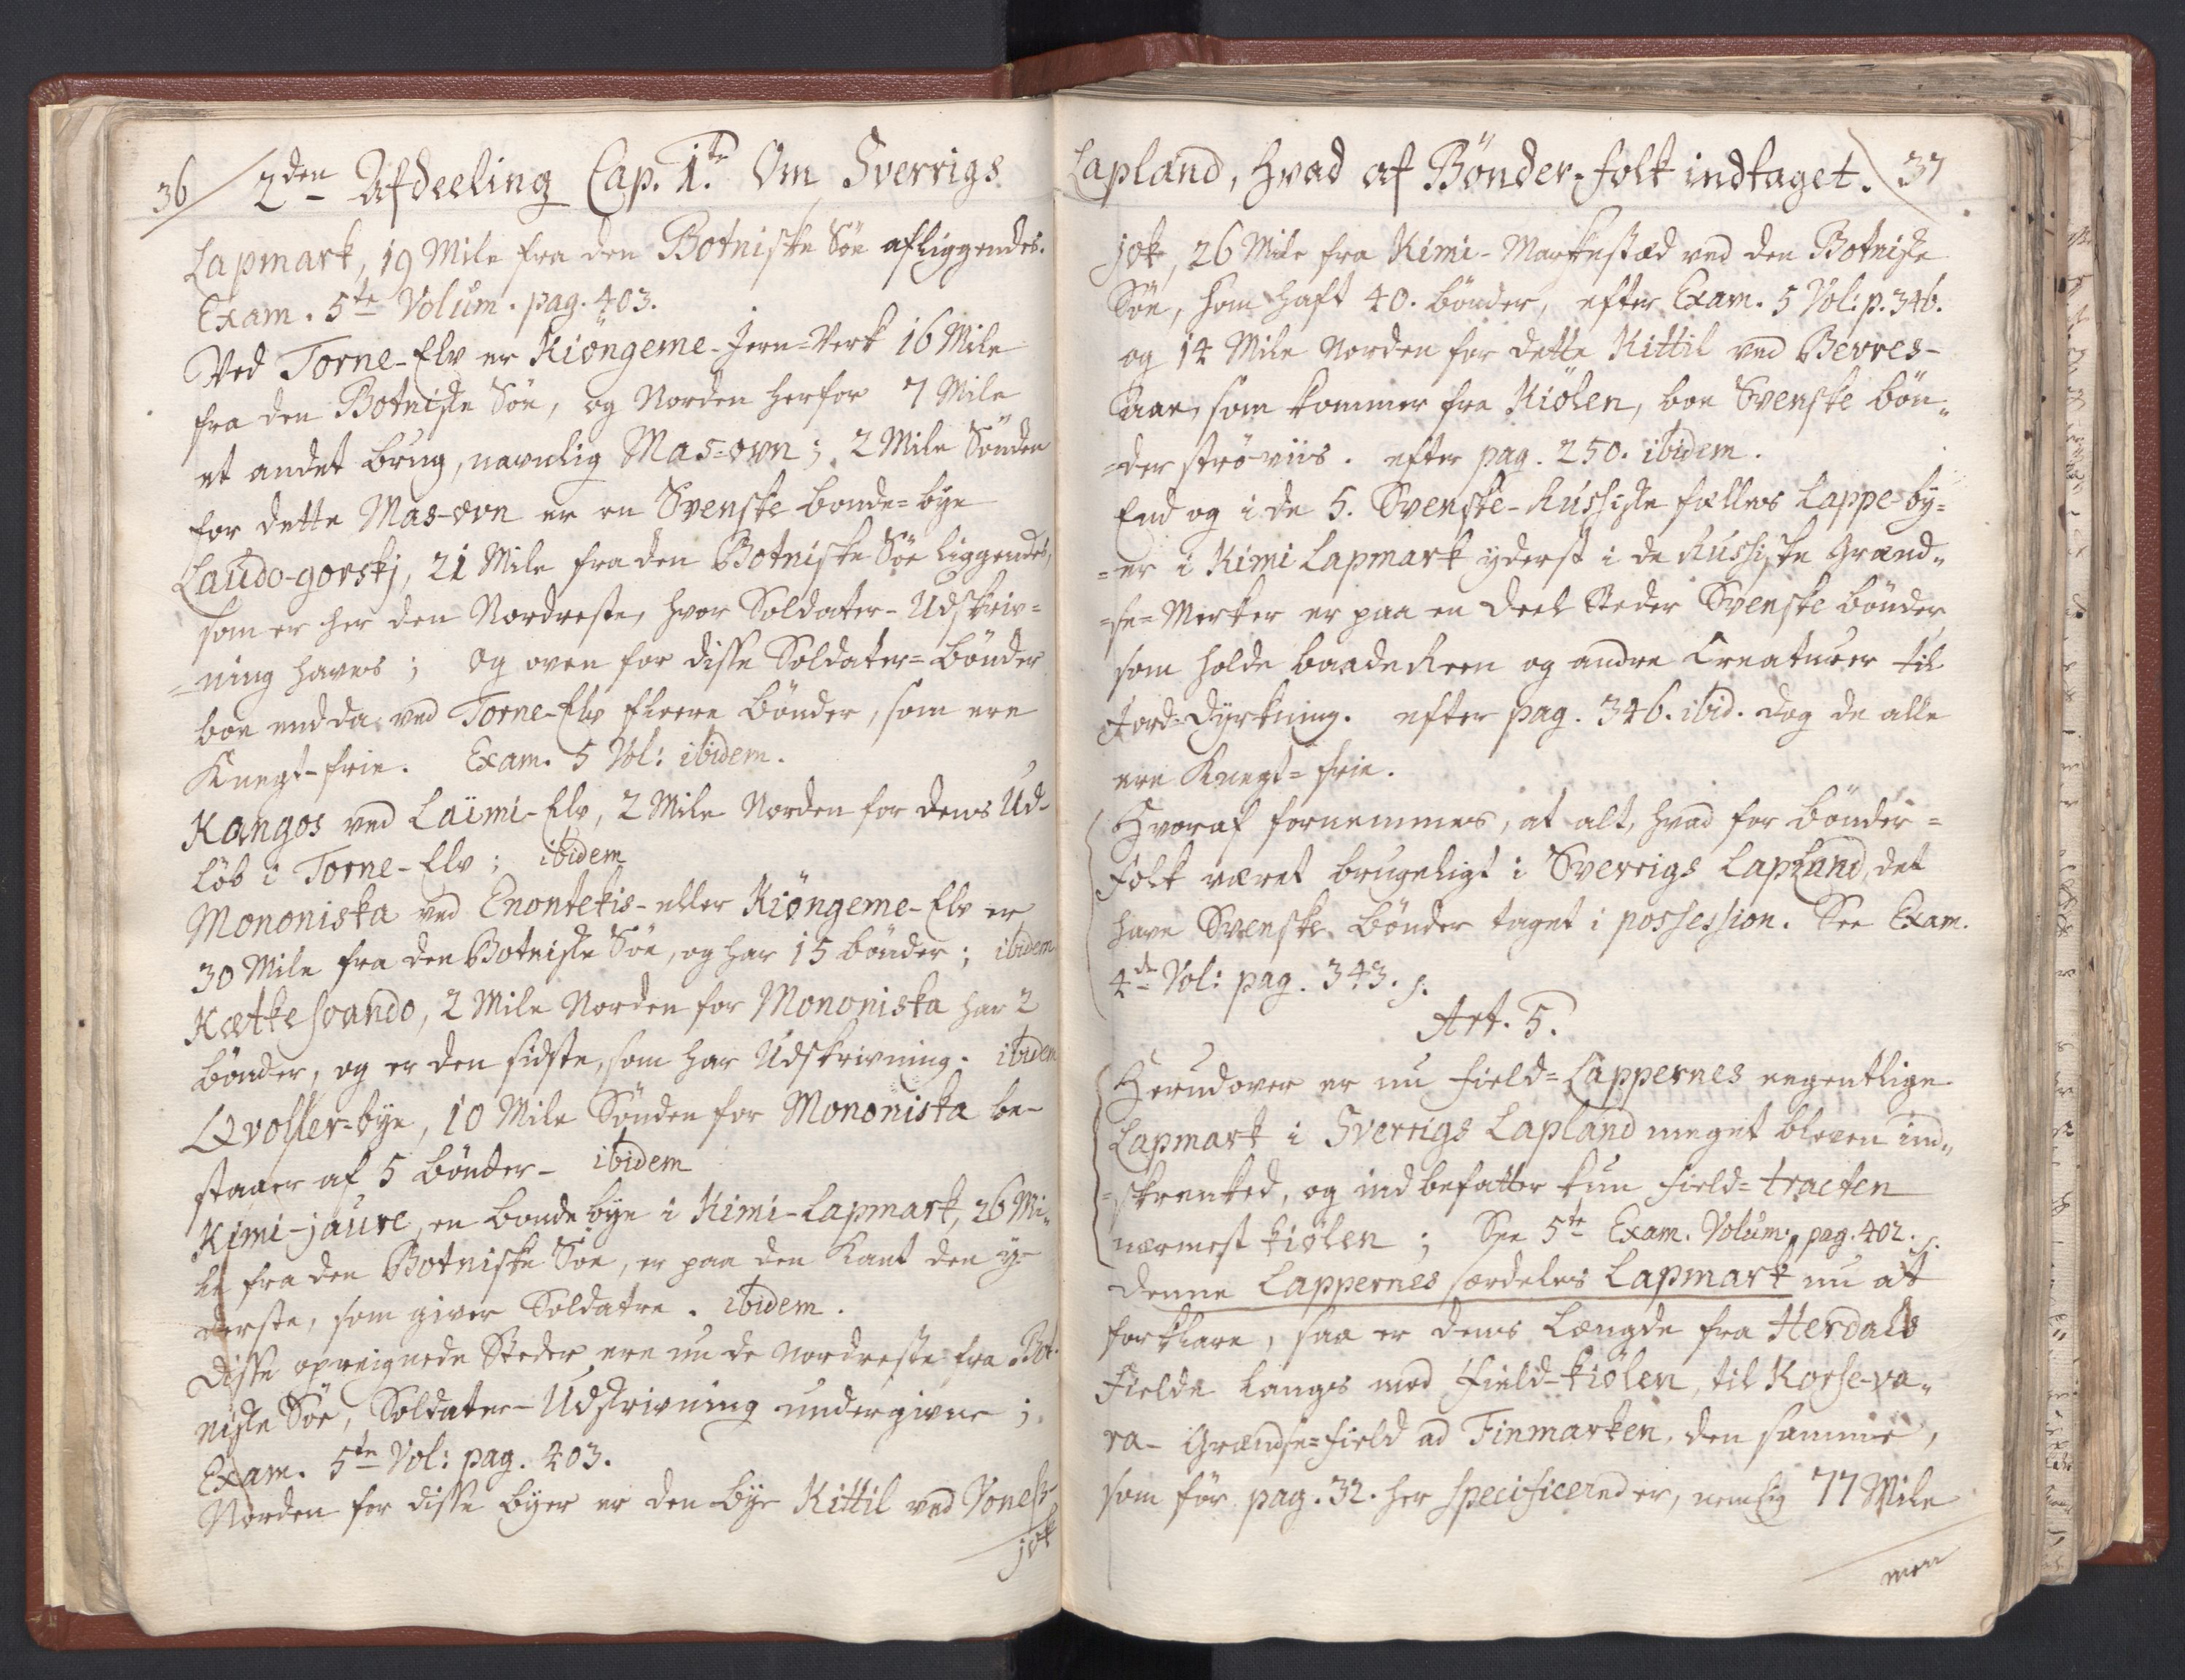 36 2den Afdeeling Cap. 1te Om Sverrigs
Lapmark, 19 Mile fra den Botniske Söe afliggendes.
Exam. 5te Volum. pag. 403.
Ved Torne-Elv er Kiöngeme-Jern=Verk 16 Mile
fra den Botniske Söe, og Norden herfor 7 Mile
et andet brug, navnlig Mas=ovn; 2 Mile Sönden
for dette Mas-ovn er en Svenske bonde=bye
Laudo-gorskj, 21 Mile fra den Botniske Söe liggendes,
som er her den Nordreste, hvor Soldater-Udskriv=
=ning haves; og oven for disse Soldater=bönder
boe endda ved Torne-Elv fleere bönder, som ere
Knegt-frie. Exam. 5 Vol: ibidem.
Kangos ved Laïmi-Elv, 2 Mile Norden for dens Ud-
löb i Torne-Elv; ibidem
Mononiska ved Enontekis- eller Kiöngeme-Elv er
30 Mile fra den Botniske Söe, og har 15 bönder; ibidem
Kætkesvando, 2 Mile Norden for Mononiska har 2
bönder, og er den sidste, som har Udskrivning. ibidem
Qvoller=bye, 10 Mile Sönden for Mononiska be-
staaer af 5 bönder- ibidem
Kimi-jaure, en bonde bye i Kimi-Lapmark, 26 Mi-
le fra den Botniske Söe, er paa den Kant den y-
derste, som giver Soldatre. ibidem.
Disse opreignede Steder ere nu de Nordreste fra Bot-
niske Söe, Soldater-Udskrivning undergivne;
Exam. 5te Vol: pag. 403.
Norden for disse byer er den bye Kittil ved Vones-
jok
Lapland, hvad af Bönder-folk indtaget. 37
jok, 26 Mile fra Kimi-Markestæd ved den Botniske
Söe, som haft 40. bönder, efter Exam. 5 Vol: p. 346.
og 14 Mile Norden for dette Kittil ved Bevres-
aae, som kommer fra Kiölen, boe Svenske bön-
=der ströviis. efter pag. 250. ibidem.
End og i de 5. Svenske-Russiske fælles Lappe-by=
=er i Kimi Lapmark yderst i de Russiske Grænd-
=se=Merker er paa en deel Steder Svenske bönder
som holde baade Reen og andre Creaturer til
Jord-dyrkning. efter pag. 346. ibid. dog de alle
ere Knegt=frie.
Hvoraf fornemmes, at alt, hvad for bönder=
folk været brugeligt i Sverrigs Lapland, det
have Svenske bönder taget i possession. See Exam.
4de Vol: pag. 343. s.
Art. 5.
Herudover er nu field=Lappernes eegentlige
Lapmark i Sverrigs Lapland meget bleven ind-
=skrenked, og indbefatter kun field=tracten
nærmest kiölen; See 5te Exam. Volum. pag. 402. s.
Denne Lappernes særdeles Lapmark nu at
forklare, saa er dens Længde fra Herdals
Fielde langs med field-kiölen, til Korse-va-
ra- Grændse=field ad Finmarken, den samme,
som för pag. 32. her specificered er, nemlig 77 Mile
men